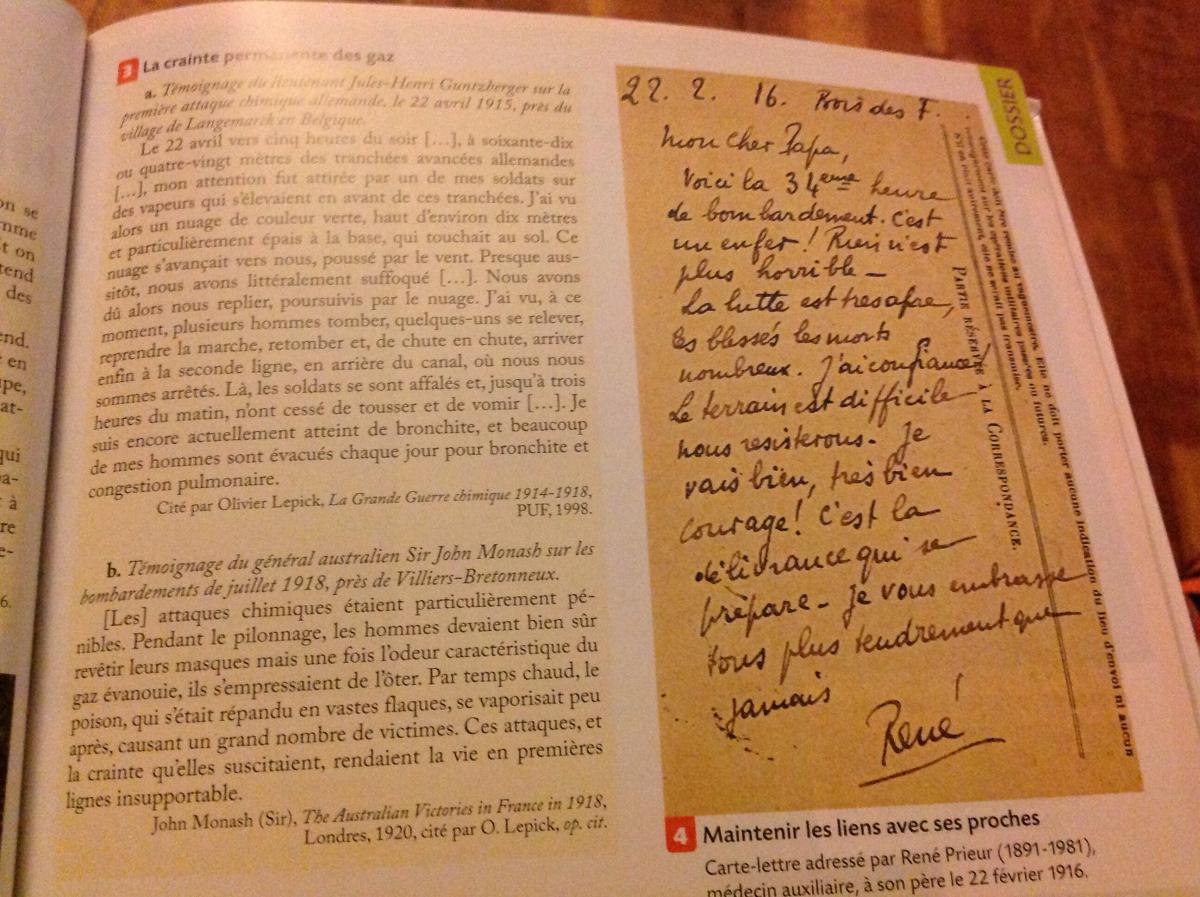 on se
mme
t on
tend
des
end.
en
pe,
at-
qui
a-
à
re
e-
6.
3 La crainte permanente des gaz
a. Témoignage du lieutenant Jules-Henri Guntzberger sur la
première attaque chimique allemande, le 22 avril 1915, près du
village de Langemarck en Belgique.
Le 22 avril vers cinq heures du soir [...], à soixante-dix
ou quatre-vingt mètres des tranchées avancées allemandes
[...], mon attention fut attirée par un de mes soldats sur
des vapeurs qui s'élevaient en avant de ces tranchées. J'ai vu
alors un nuage de couleur verte, haut d'environ dix mètres
et particulièrement épais à la base, qui touchait au sol. Ce
nuage s'avançait vers nous, poussé par le vent. Presque aus-
sitôt, nous avons littéralement suffoqué [...]. Nous avons
dû alors nous replier, poursuivis par le nuage. J'ai vu, à ce
moment, plusieurs hommes tomber, quelques-uns se relever,
reprendre la marche, retomber et, de chute en chute, arriver
enfin à la seconde ligne, en arrière du canal, où nous nous
sommes arrêtés. Là, les soldats se sont affalés et, jusqu'à trois
heures du matin, n'ont cessé de tousser et de vomir [...]. Je
suis encore actuellement atteint de bronchite, et beaucoup
de mes hommes sont évacués chaque jour pour bronchite et
congestion pulmonaire.
Cité par Olivier Lepick, La Grande Guerre chimique 1914-1918,
PUF, 1998.
b. Témoignage du général australien Sir John Monash sur les
bombardements de juillet 1918, près de Villiers-Bretonneux.
[Les] attaques chimiques étaient particulièrement pé-
nibles. Pendant le pilonnage, les hommes devaient bien sûr
revêtir leurs masques mais une fois l'odeur caractéristique du
gaz évanouie, ils s'empressaient de l'ôter. Par temps chaud, le
poison, qui s'était répandu en vastes flaques, se vaporisait peu
après, causant un grand nombre de victimes. Ces attaques, et
la crainte qu'elles suscitaient, rendaient la vie en premières
lignes insupportable.
John Monash (Sir), The Australian Victories in France in 1918,
Londres, 1920, cité par O. Lepick, op. cit.
DOSSIER
22. 2. 16. Bois des F.
Mon cher Papa,
Voici la 34eme heure
de bombardement. C'est
un enfer! Rien n'est
plus horrible -
La lutte est tres apre,
les blessés les morts
nombreux. J'ai confiance!
Le terrain est difficile
nous resisterons. Je
vais bien, tres bien
courage! C'est la
délivrance qui se
prépare - Je vous embrasse
tous plus tendrement que
jamais
René
PARTIE RÉSERVÉE À LA CORRESPONDANCE.
Cette carte doit être remise au vaguemestre. Elle ne doit porter aucune indication du lieu d'envoi ni aucun
renseignement sur les opérations militaires passées ou futures.
S'il en était autrement, elle ne serait pas transmise.
4 Maintenir les liens avec ses proches
Carte-lettre adressé par René Prieur (1891-1981),
médecin auxiliaire, à son père le 22 février 1916.